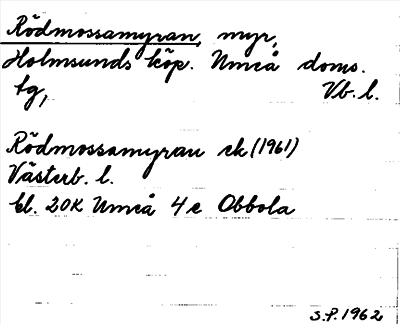 Rödmossamyran, myr,
Holmsunds köp. Umeå doms.
tg, Vb. l.
Rödmossamyran ek (1961)
Västerb. l.
bl. 20K Umeå 4e Obbola
S.P. 1962